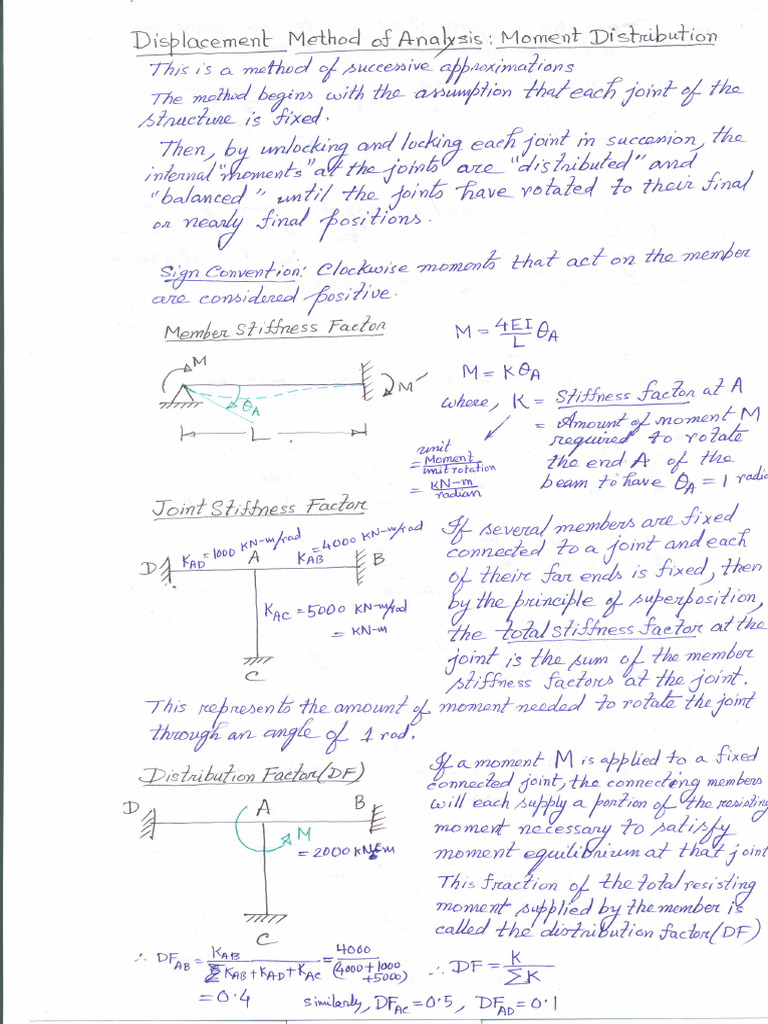 Displacement Method of Analysis: Moment Distribution
This is a method of successive approximations
The method begins with the assumption that each joint of the
structure is fixed.
Then, by unlocking and locking each joint in succession, the
internal "moments" at the joints are "distributed" and
"balanced" until the joints have rotated to their final
or nearly final positions.
Sign Convention: Clockwise moments that act on the member
are considered positive.
Member Stiffness Factor
M = 4EI/L θA
M
M = KθA
M′
θA
L
where, K = Stiffness factor at A
= Amount of moment M
required to rotate
the end A of the
beam to have θA = 1 radia
unit
= Moment/unit rotation
= KN-m/radian
Joint Stiffness Factor
D
KAD = 1000 KN-m/rad
A
KAB = 4000 KN-m/rad
B
KAC = 5000 KN-m/rad
= KN-m
C
If several members are fixed
connected to a joint and each
of their far ends is fixed, then
by the principle of superposition,
the total stiffness factor at the
joint is the sum of the member
stiffness factors at the joint.
This represents the amount of moment needed to rotate the joint
through an angle of 1 rad.
Distribution Factor(DF)
D
A
B
M
= 2000 KN-m
C
If a moment M is applied to a fixed
connected joint, the connecting members
will each supply a portion of the resisting
moment necessary to satisfy
moment equilibrium at that joint
This fraction of the total resisting
moment supplied by the member is
called the distribution factor(DF)
∴ DFAB = KAB/KAB+KAD+KAC = 4000/(4000+1000+5000)
= 0.4
∴ DF = K/ΣK
similarly, DFAC = 0.5, DFAD = 0.1